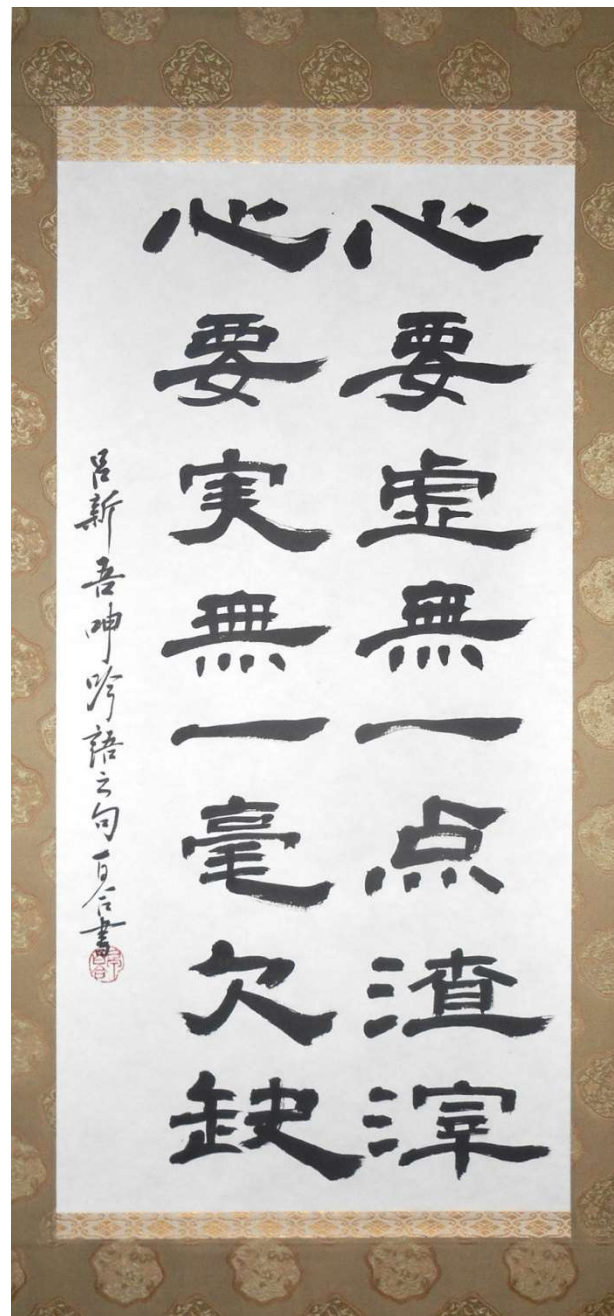 心要虚無一点渣滓
心要実無一毫欠缺
呂新吾呻吟語之句 百合書
百合